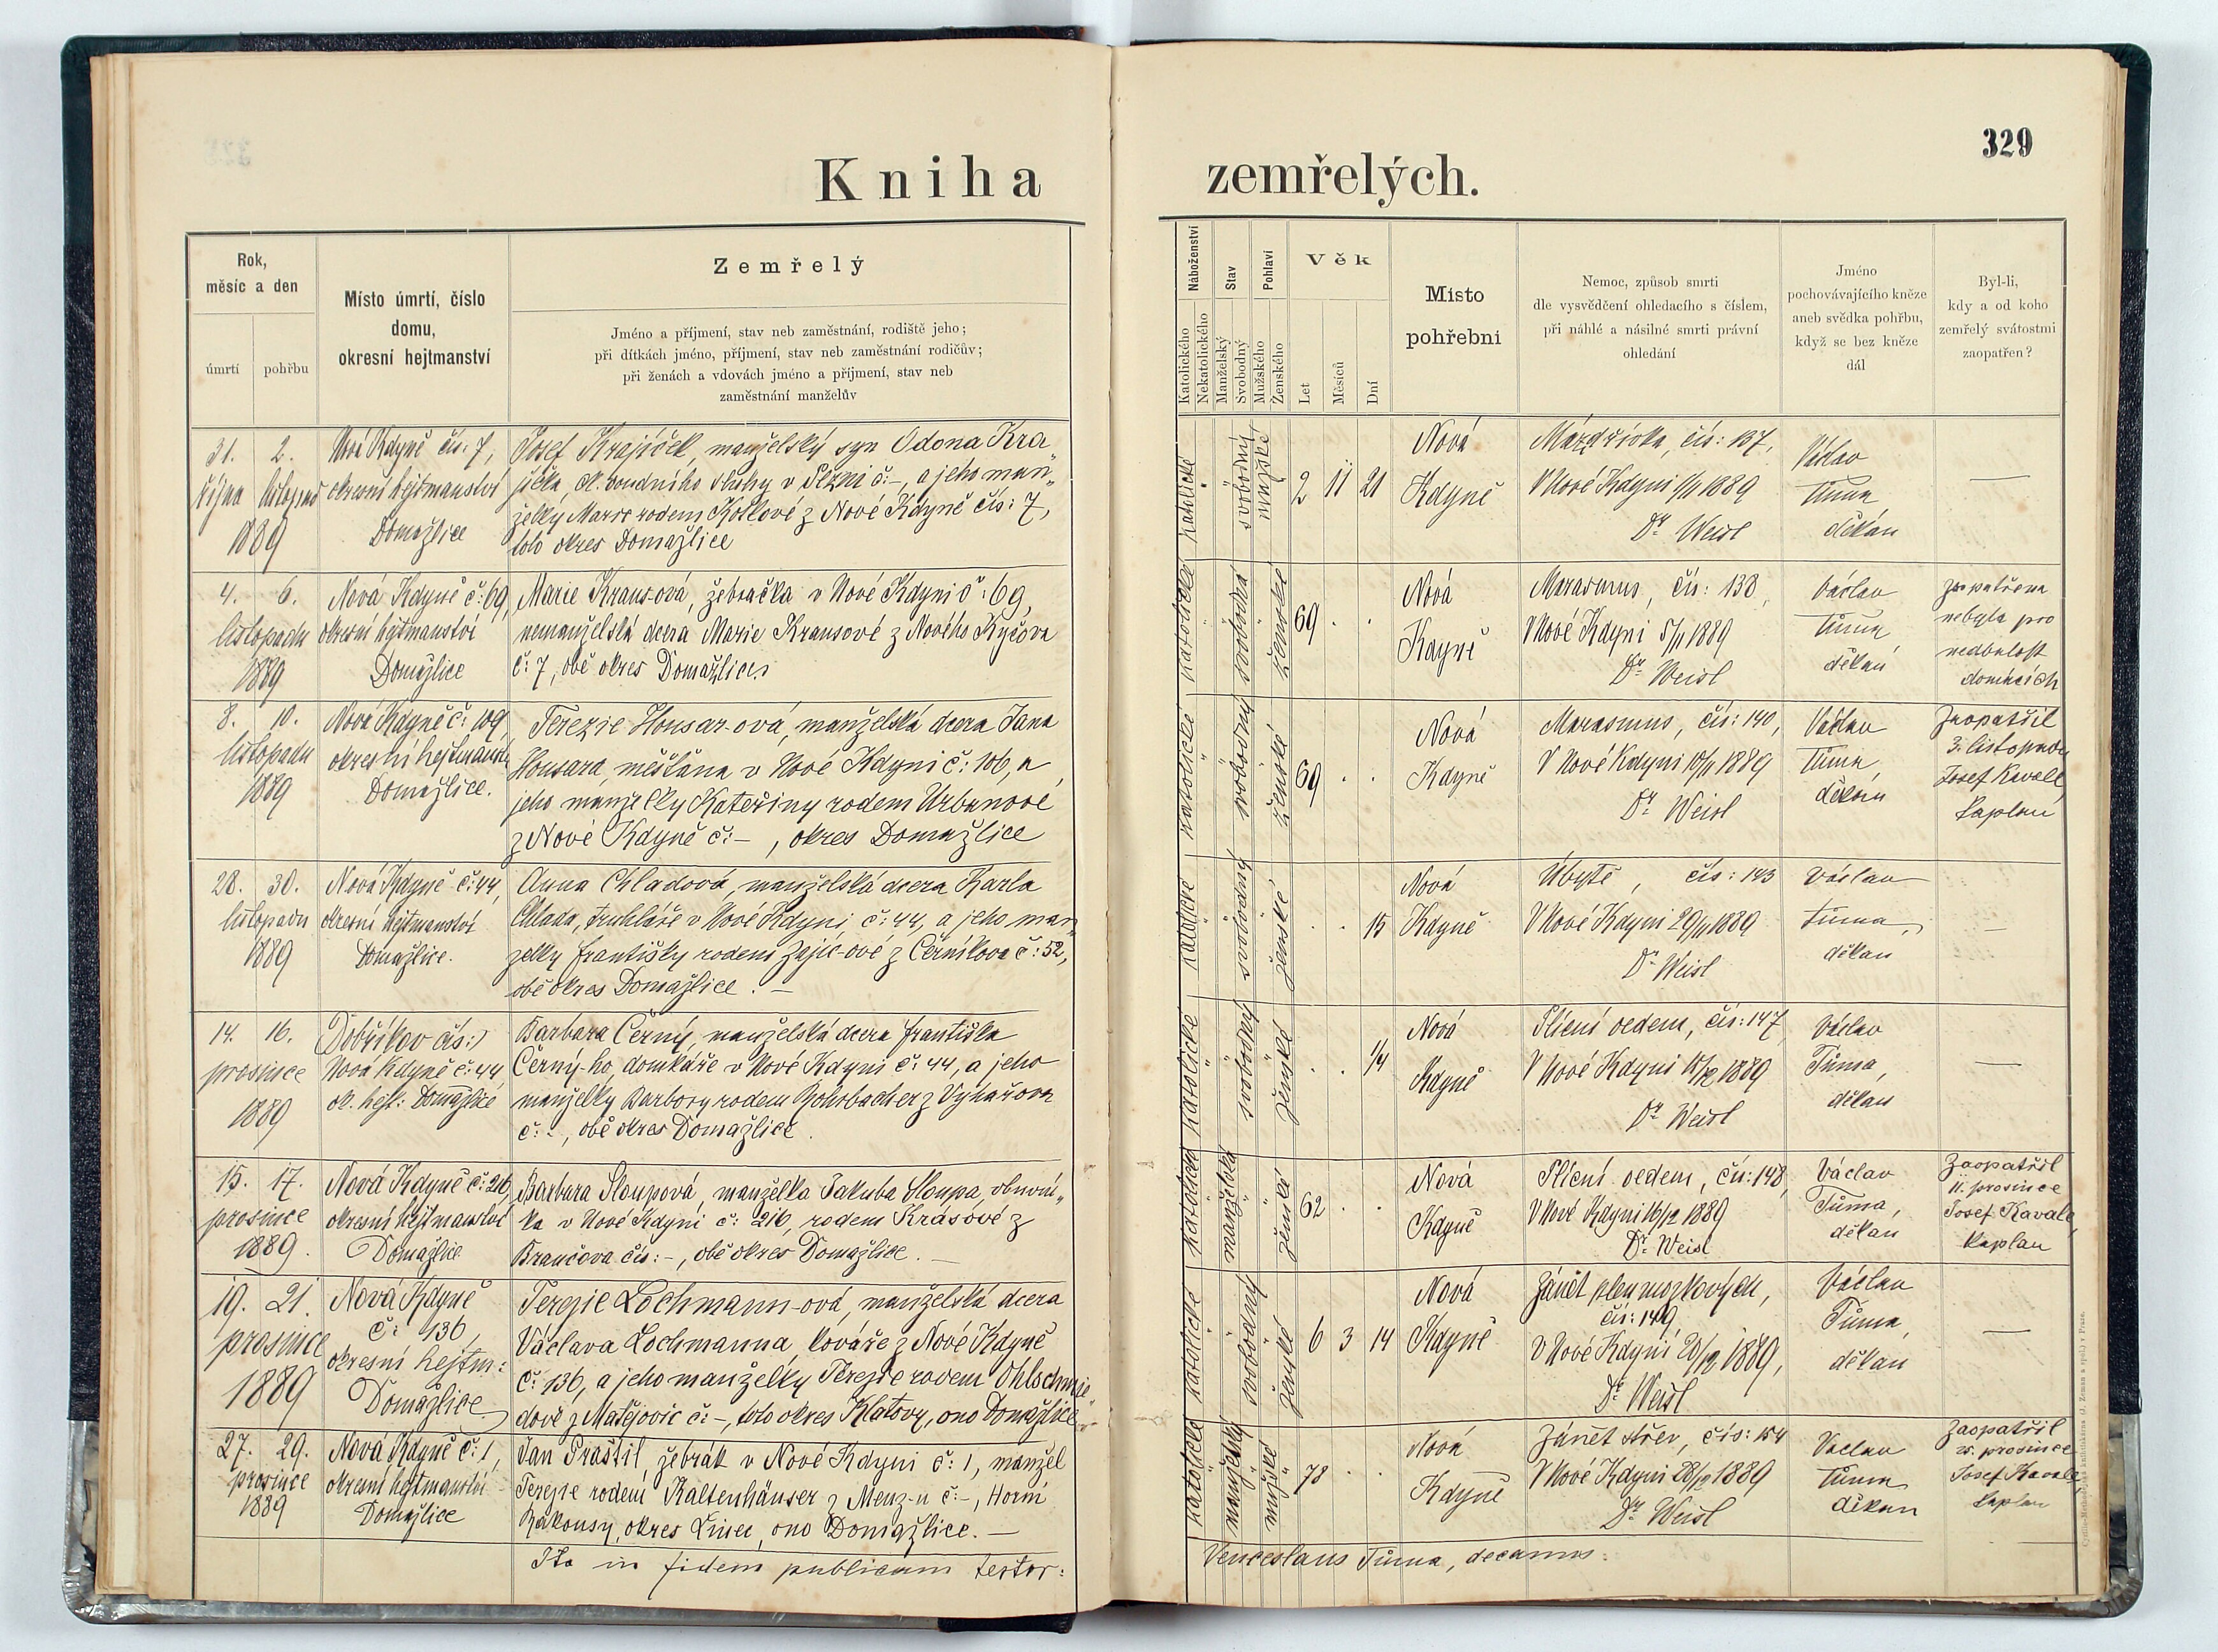 329
Kniha zemřelých.
Rok,
měsíc a den
úmrtí
pohřbu
Místo úmrtí, číslo
domu,
okresní hejtmanství
Zemřelý
Jméno a příjmení, stav neb zaměstnání, rodiště jeho;
při dítkách jméno, příjmení, stav neb zaměstnání rodičův;
při ženách a vdovách jméno a příjmení, stav neb
zaměstnání manželův
Náboženství
Katolického
Nekatolického
Stav
Manželský
Svobodný
Pohlaví
Mužského
Ženského
Věk
Let
Měsíců
Dní
Místo
pohřební
Nemoc, způsob smrti
dle vysvědčení ohledacího s číslem,
při náhlé a násilné smrti právní
ohledání
Jméno
pochovávajícího kněze
aneb svědka pohřbu,
když se bez kněze
dál
Byl-li,
kdy a od koho
zemřelý svátostmi
zaopatřen?
31. 2.
října listopad
1889
Nová Kdyně čís: 7,
okresní hejtmanství
Domažlice
Josef Krajíček, manželský syn Odona Kra„
jíčka, ok. soudního sluhy v Plzni č:-, a jeho man„
želky Marie rodem Kotlové z Nové Kdyně čís: 7,
toto okres Domažlice
katolické
svobodný
mužské
2 11 21
Nová
Kdyně
Mázdřivka, čís: 137,
V Nové Kdyni 1/11 1889
Dr. Weisl
Václav
Tůma
děkan
—
4. 6.
listopadu
1889
Nová Kdyně č: 69,
okresní hejtmanství
Domažlice
Marie Krausová, žebračka v Nové Kdyni č: 69,
nemanželská dcera Marie Krausové z Nového
č: 7, obě okres Domažlice
katolické
svobodná
ženské
69 . .
Nová
Kdyně
Marasmus, čís: 138,
V Nové Kdyni 5/11 1889
Dr. Weisl
Václav
Tůma
děkan
zaopatřena
nebyla pro
nedbalost
domácích
8. 10.
listopadu
1889
Nová Kdyně č: 109,
okresní hejtmanství
Domažlice.
Terezie Housar-ová, manželská dcera Jana
Housara, měšťana v Nové Kdyni č: 106, a
jeho manželky Kateřiny rodem Urbanové
z Nové Kdyně č: -, okres Domažlice
katolické
svobodný
ženské
69 . .
Nová
Kdyně
Marasmus, čís: 140,
V Nové Kdyni 10/11 1889
Dr. Weisl
Václav
Tůma,
děkan
Zaopatřil
3. listopadu
Josef Kavale,
kaplan
28. 30.
listopadu
1889
Nová Kdyně č: 44,
okresní hejtmanství
Domažlice.
Anna Chladová, manželská dcera Karla
Chlada, truhláře v Nové Kdyni, č: 44, a jeho man„
želky Františky rodem Zajíc-ové z Černíkova č: 52,
obě okres Domažlice. —
katolické
svobodný
ženské
. . 15
Nová
Kdyně
Úbytě, čís: 143
V Nové Kdyni 29/11 1889
Dr. Weisl
Václav
Tůma,
děkan
—
14. 16.
prosince
1889
Dobříkov čís:)
Nová Kdyně č: 44,
ok. hejt: Domažlice
Barbara Černý, manželská dcera Františka
Černý-ho, domkáře v Nové Kdyni č: 44, a jeho
manželky Barbory rodem Rohrbacher z
č: -, obě okres Domažlice.
katolické
svobodný
ženské
. . 1/4
Nová
Kdyně
Plícní oedem, čís: 147,
V Nové Kdyni 15/12 1889
Dr. Weisl
Václav
Tůma,
děkan
—
15. 17.
prosince
1889.
Nová Kdyně č: 216,
okresní hejtmanství
Domažlice
Barbara Sloupová, manželka Jakuba Sloupa, obuvní„
ka v Nové Kdyni č: 216, rodem Krásové z
Brančova čís: -, obě okres Domažlice. —
katolické
manželská
ženské
62 . .
Nová
Kdyně
Plícní oedem, čís: 148,
V Nové Kdyni 16/12 1889
Dr. Weisl
Václav
Tůma,
děkan
Zaopatřil
11. prosince
Josef Kavale,
kaplan
19. 21.
prosince
1889
Nová Kdyně
č: 136,
okresní hejtm:
Domažlice
Terezie Lochmann-ová, manželská dcera
Václava Lochmanna, kováře z Nové Kdyně
č: 136, a jeho manželky Terezie rodem Ohlschmie„
dové z Matějovic č: -, toto okres Klatovy, ono Domažlice
katolické
svobodný
ženské
6 3 14
Nová
Kdyně
Zánět plen mozkových,
čís: 149,
V Nové Kdyni 20/12 1889,
Dr. Weisl
Václav
Tůma,
děkan
—
27. 29.
prosince
1889
Nová Kdyně č: 1,
okresní hejtmanství
Domažlice
Jan Prášil, žebrák v Nové Kdyni č: 1, manžel
Terezie rodem Kaltenhäuser z Menz-u č: -, Horní
Rakousy, okres Linec, ono Domažlice. —
katolické
manželský
mužské
78 . .
Nová
Kdyně
Zánět střev, čís: 154
V Nové Kdyni 28/12 1889
Dr. Weisl
Václav
Tůma
děkan
Zaopatřil
25. prosince
Josef Kavale,
kaplan
Ita in fidem publicam testor:
Venceslaus Tůma, decanus.